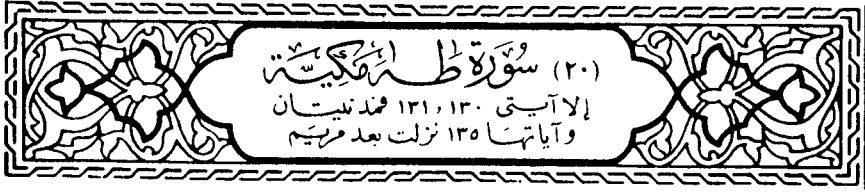 (٢٠) سُورَة طٰه مَكِّيَّة
إلا آيتى ١٣٠ و ١٣١ فمدنيتان
وآياتها ١٣٥ نزلت بعد مريم